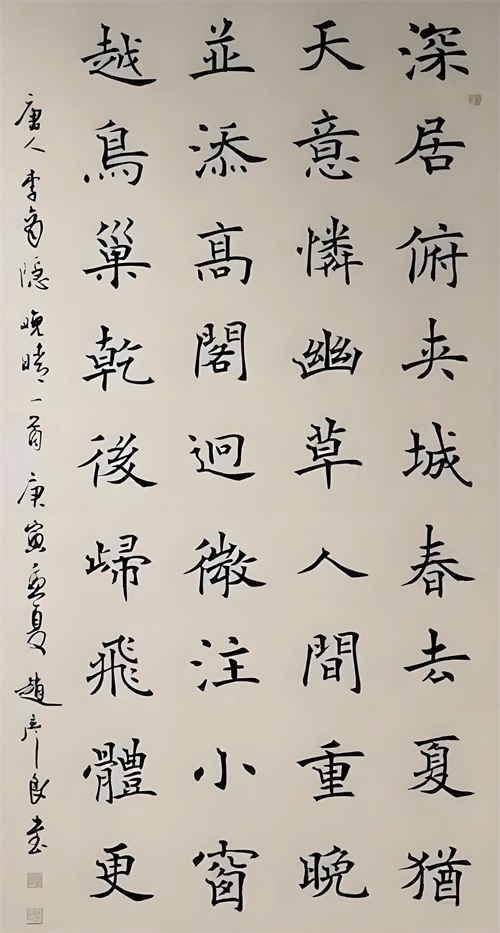 深居俯夹城春去夏猶
天意憐幽草人間重晚
並添高閣迥微注小窗
越鳥巢乾後歸飛體更
唐人李商隱晚晴一首 庚寅孟夏 趙彥良书